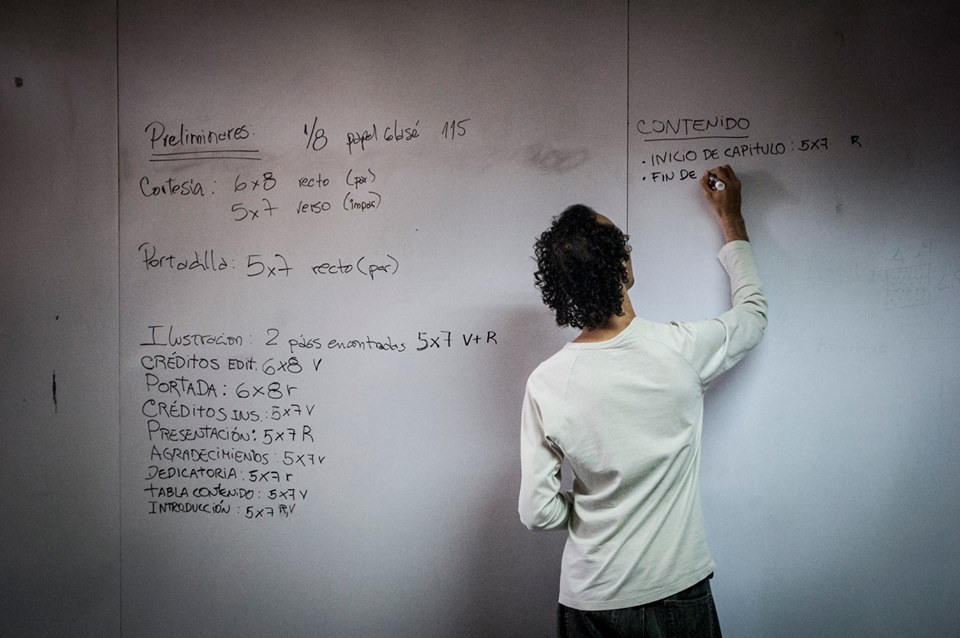 Preliminares: 1/8 papel 115
Cortesía: 6x8 recto (par)
5x7 verso (impar)
Portadilla: 5x7 recto (par)
Ilustracion: 2 págs encontradas 5x7 V+R
CRÉDITOS EDIT. 6x8 V
PORTADA: 6x8 r
CRÉDITOS INS.: 5x7 V
PRESENTACIÓN: 5x7 R
AGRADECIMIENTOS: 5x7 v
DEDICATORIA: 5x7 r
TABLA CONTENIDO: 5x7 V
INTRODUCCIÓN: 5x7 R,V
CONTENIDO
• INICIO DE CAPITULO: 5x7 R
• FIN DE